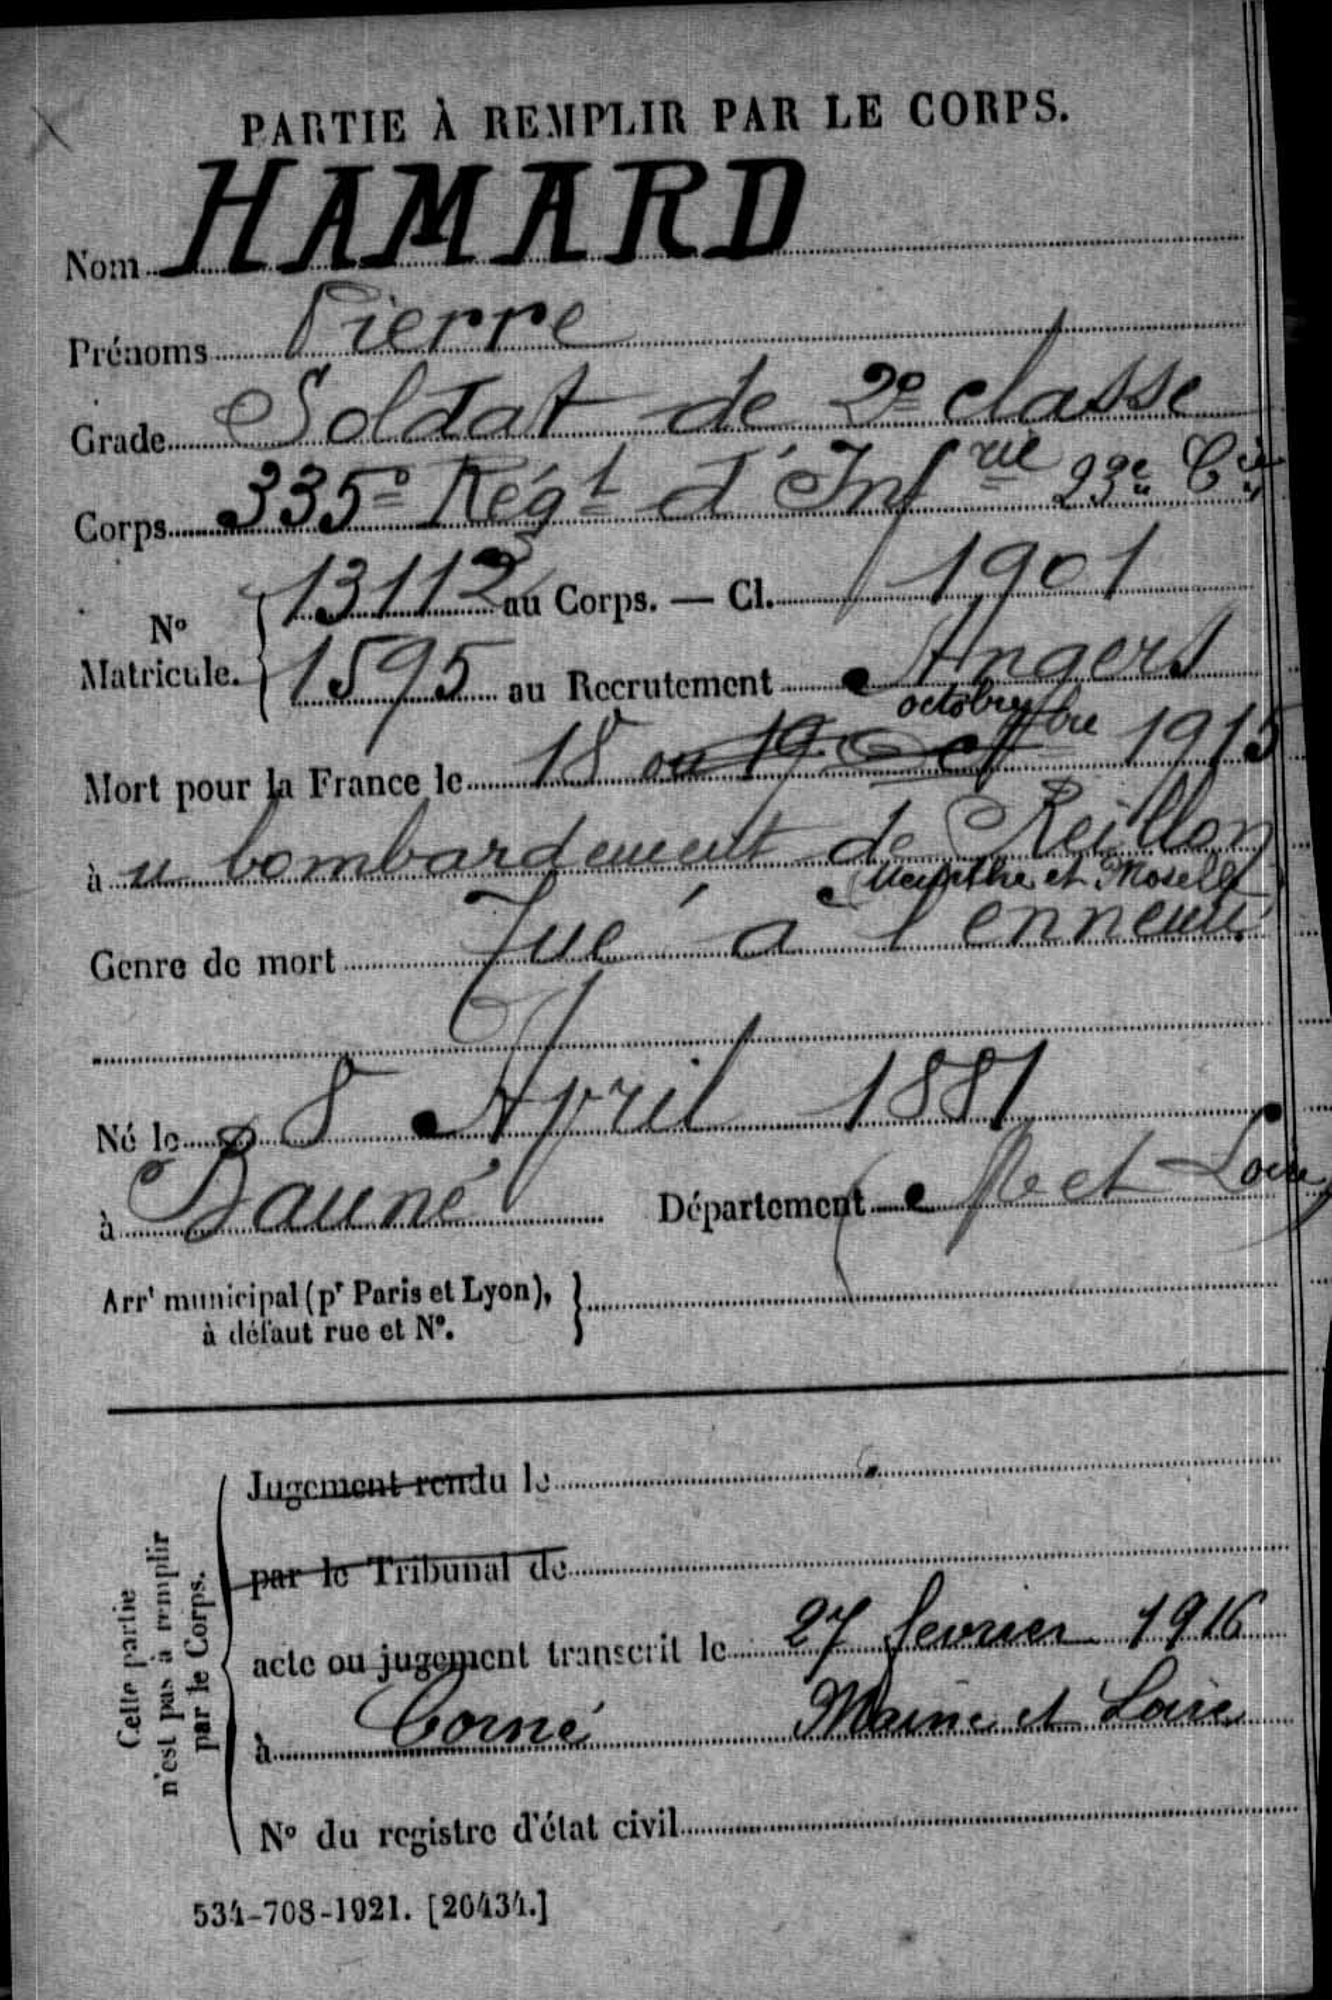 PARTIE À REMPLIR PAR LE CORPS.
Nom HAMARD
Prénoms Pierre
Grade Soldat de 2e classe
Corps 335e Régt d'Infrie 23e Cie
No Matricule. 13112 au Corps. — Cl. 1901
1595 au Recrutement Angers
octobre
Mort pour la France le 18 ou 19 1915
à u bombardement de Reillon
Meurthe et Moselle
Genre de mort Tué à l'ennemi
Né le 8 Avril 1881
à Bauné Département M et Loire
Arrt municipal (pr Paris et Lyon),
à défaut rue et No.
Cette partie
n'est pas à remplir
par le Corps.
Jugement rendu le
par le Tribunal de
acte ou jugement transcrit le 27 fevrier 1916
à Corné Maine et Loire
No du registre d'état civil
534-708-1921. [26434.]